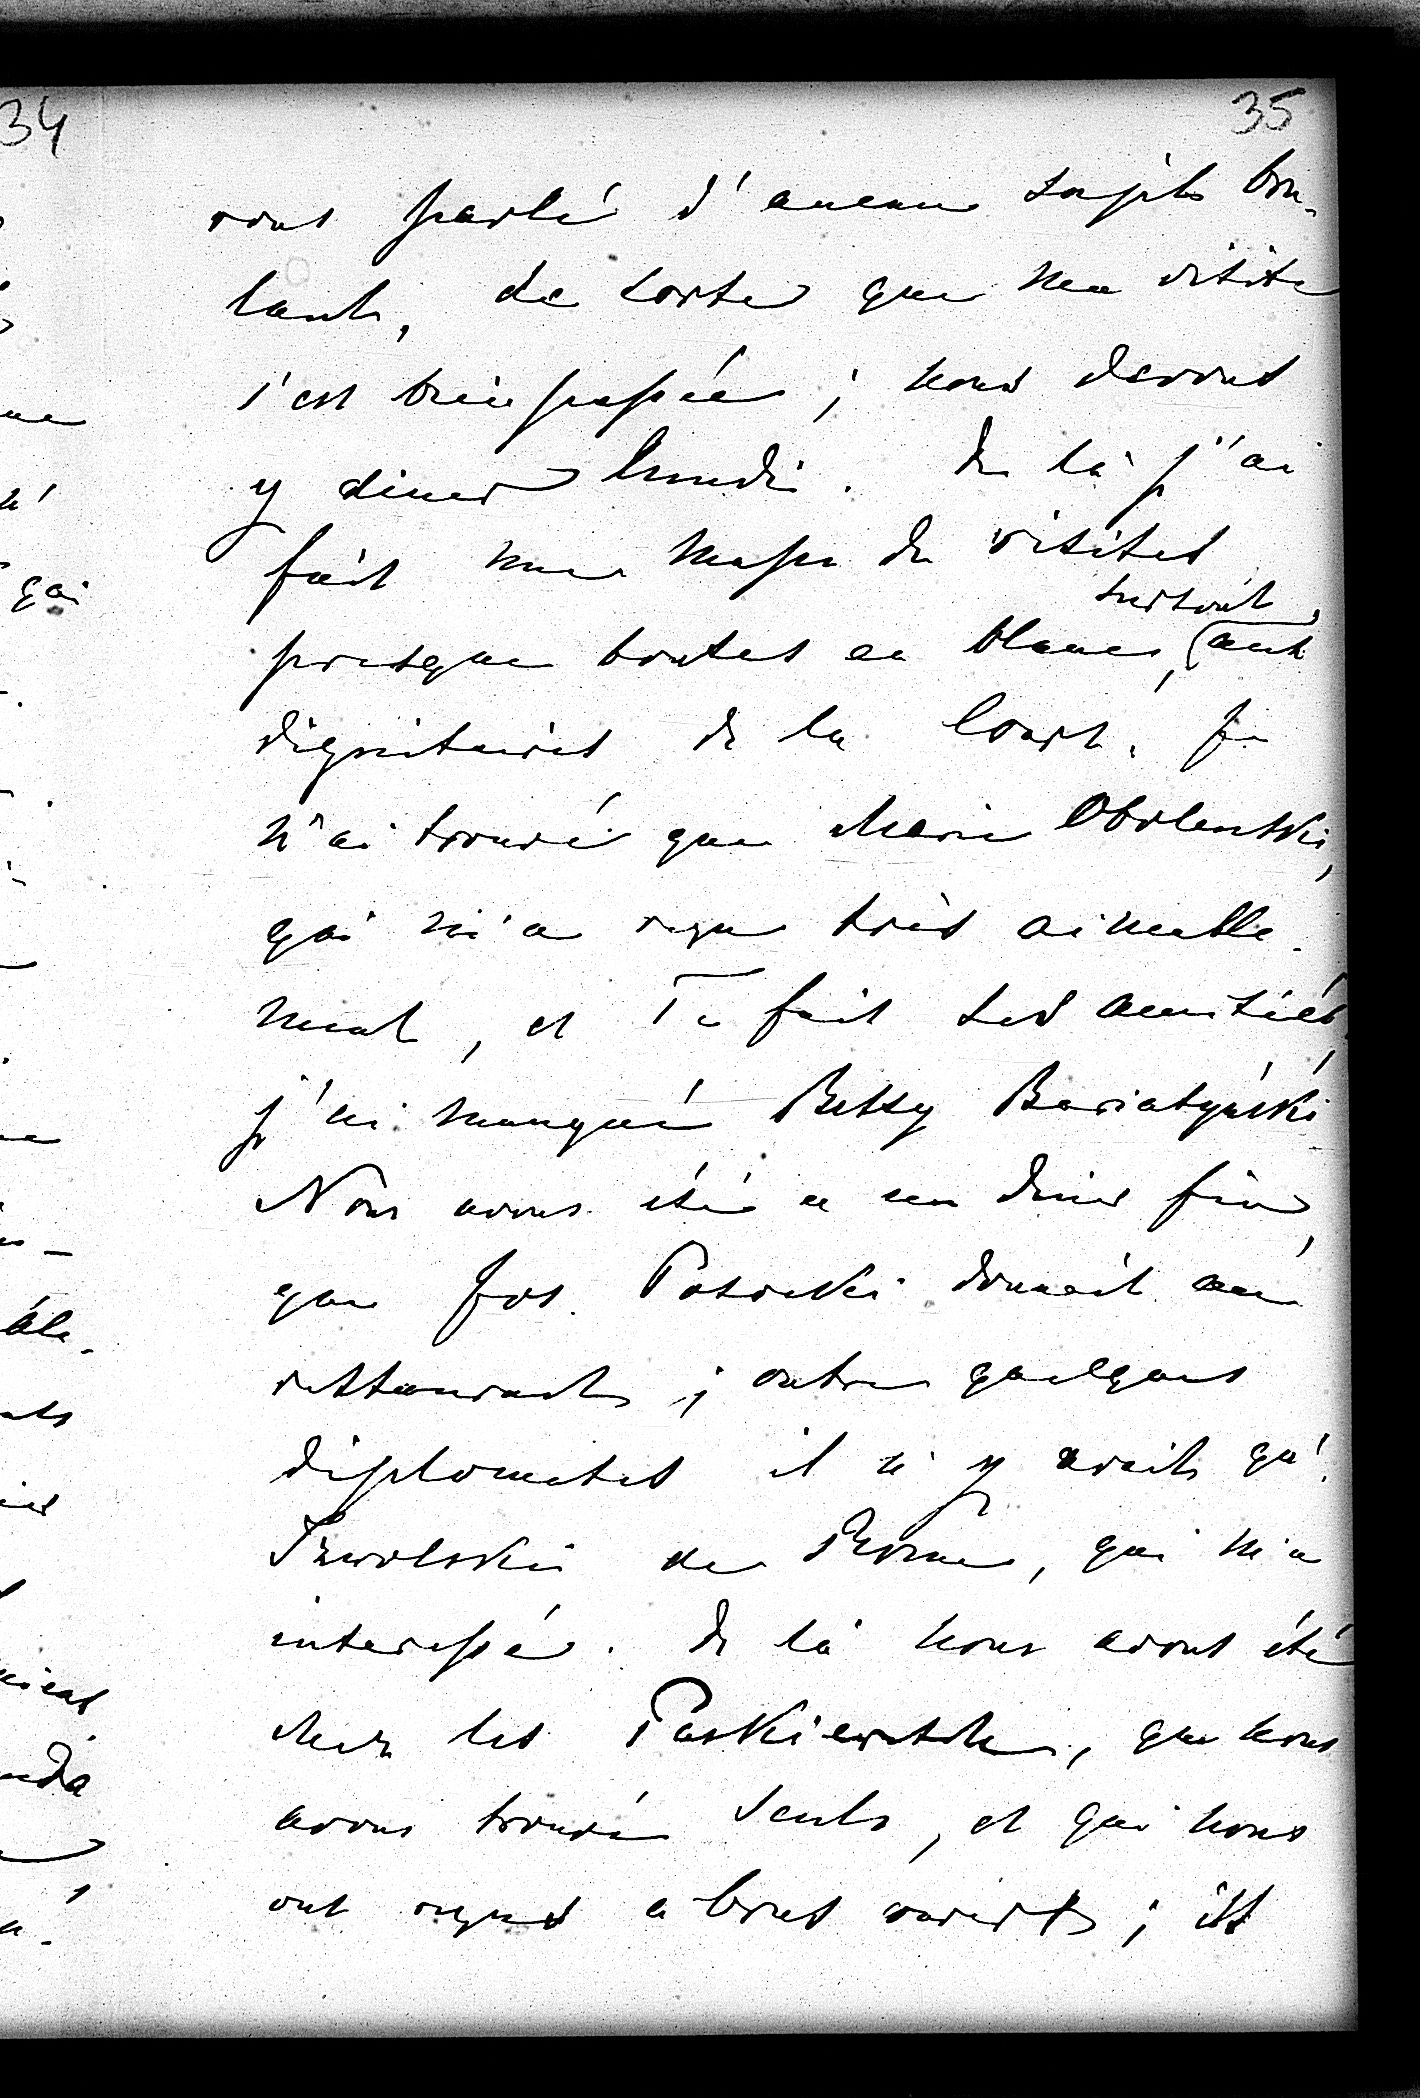 34
35
vons parlé d'aucun sujets bru-
lants, de sorte que ma visite
s'est bien passée ; nous devons
y diner lundi. De là j'ai
fait une masse de visites
presque toutes en blanc, (surtout aux
dignitaires de la Cour. Je
n'ai trouvé que Marie Obolenski,
qui m'a reçu très aimable-
ment, et Te fait ses amitiés,
j'ai manqué Betsy Bariatynski
Nous avons été a un diner fin,
que Jos. Potocki donnait au
restaurant ; outre quelques
diplomates il n'y avait qu'
Iswolski de Rome, qui m'a
interessé. De là nous avons été
chez les Paskiewitch, que nous
avons trouvé seuls, et qui nous
ont reçus a bras ouverts ; ils